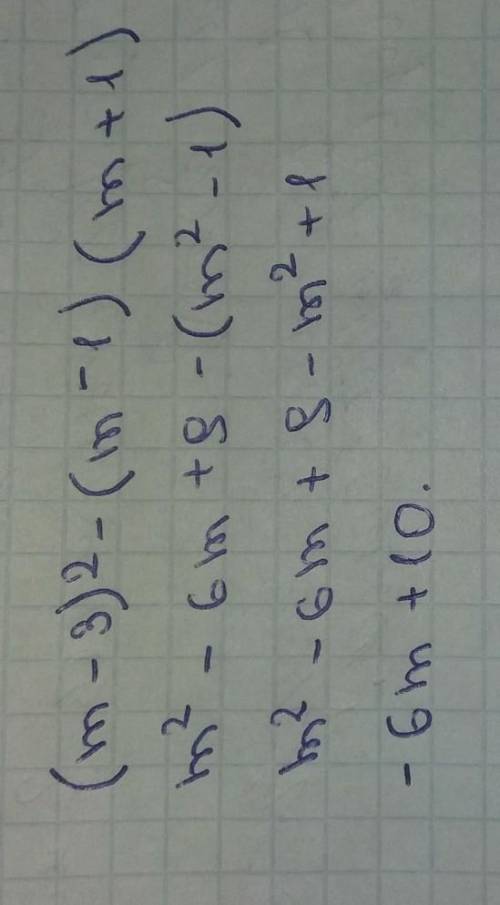 (m - 3)² - (m - 1) (m + 1)
m² - 6m + 9 - (m² - 1)
m² - 6m + 9 - m² + 1
- 6m + 10.